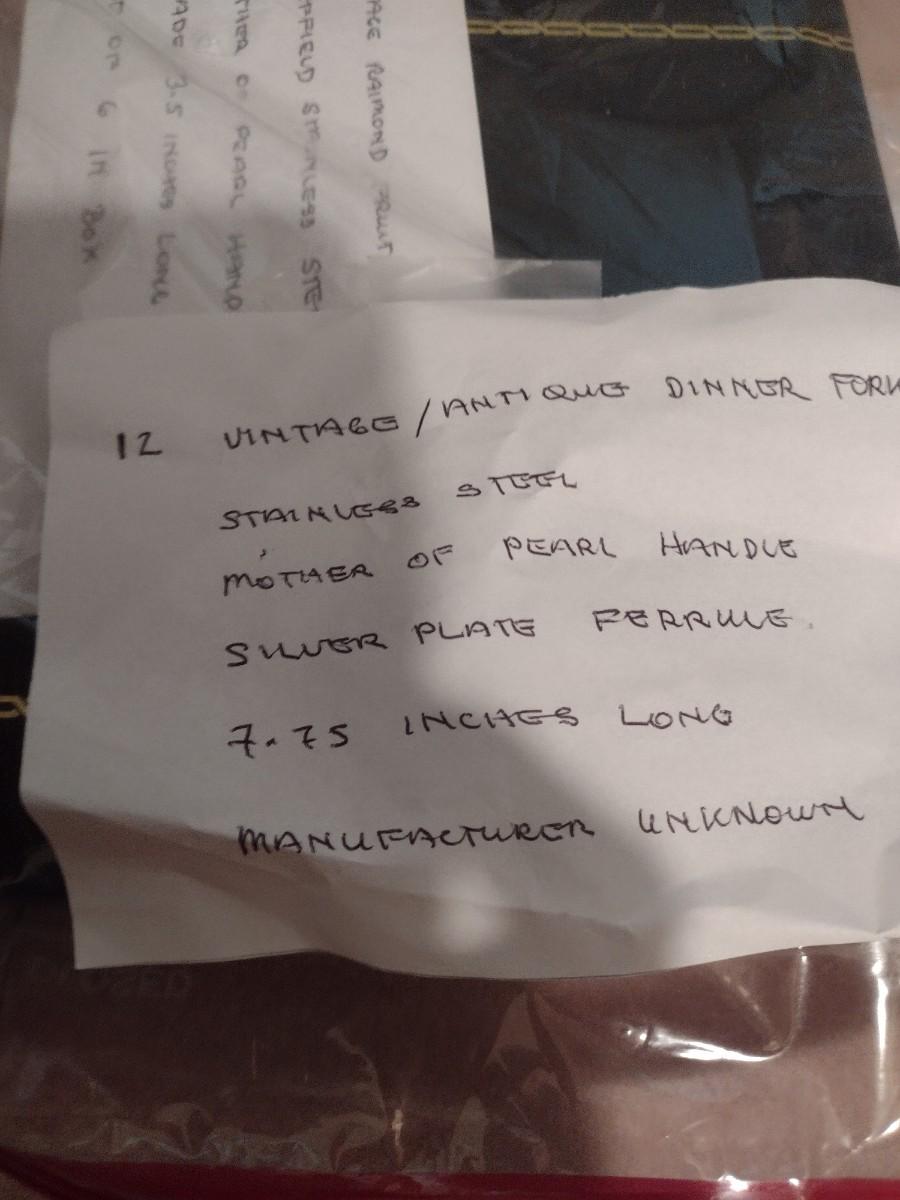 12 VINTAGE/ANTIQUE DINNER FORK
STAINLESS STEEL
MOTHER OF PEARL HANDLE
SILVER PLATE FERRULE.
7.75 INCHES LONG
MANUFACTURER UNKNOWN
AGE RAIMOND FRUIT
FFIELD STAINLESS STE
THER OF PEARL HAND
ADE 3.5 INCHES LONG
T OF 6 IN BOX